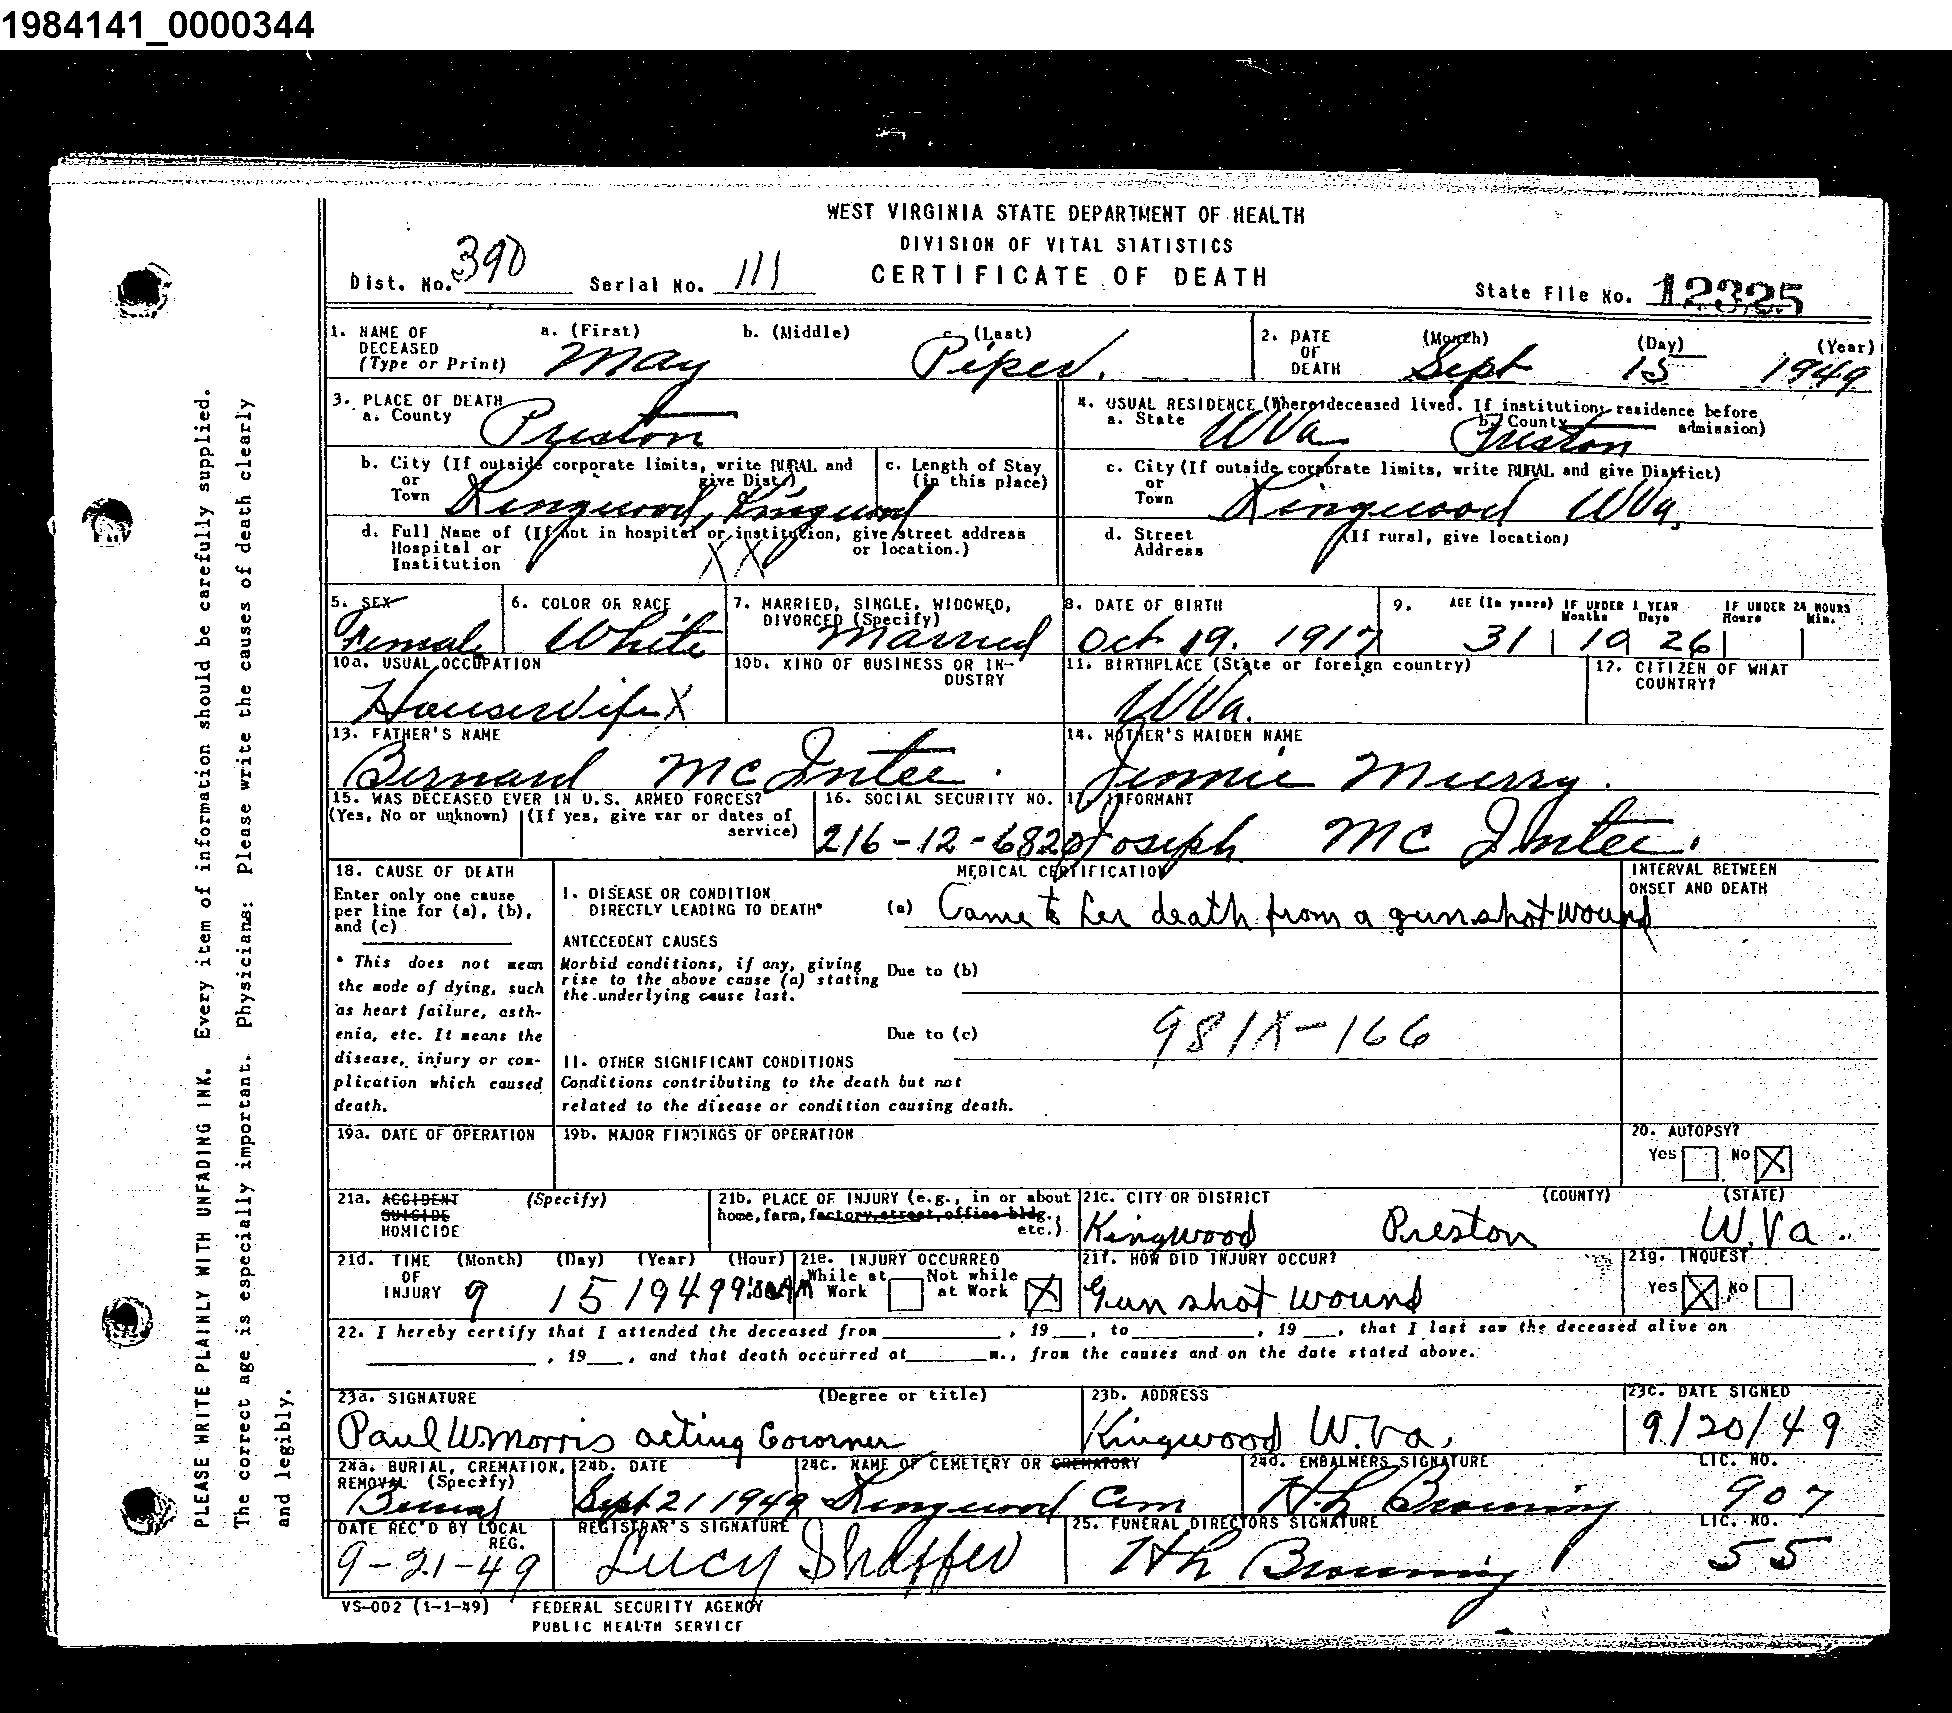 1984141_0000344
WEST VIRGINIA STATE DEPARTMENT OF HEALTH
DIVISION OF VITAL STATISTICS
Dist. No. 390 Serial No. 111 CERTIFICATE OF DEATH State File No. 12325
1. NAME OF DECEASED (Type or Print) a. (First) May b. (Middle) c. (Last) Piper.
2. DATE OF DEATH (Month) Sept (Day) 15 (Year) 1949
3. PLACE OF DEATH a. County Preston
4. USUAL RESIDENCE (Where deceased lived. If institution: residence before admission) a. State WVa b. County Preston
b. City (If outside corporate limits, write RURAL and give Dist.) or Town Kingwood, Kingwood
c. Length of Stay (in this place)
c. City (If outside corporate limits, write RURAL and give District) or Town Kingwood WVa.
d. Full Name of (If not in hospital or institution, give street address or location.) Hospital or Institution X X
d. Street Address (If rural, give location)
5. SEX Female
6. COLOR OR RACE White
7. MARRIED, SINGLE, WIDOWED, DIVORCED (Specify) Married
8. DATE OF BIRTH Oct 19. 1917
9. AGE (In years) 31 IF UNDER 1 YEAR Months 10 Days 26 IF UNDER 24 HOURS Hours Min.
10a. USUAL OCCUPATION Housewife X
10b. KIND OF BUSINESS OR INDUSTRY
11. BIRTHPLACE (State or foreign country) WVa.
12. CITIZEN OF WHAT COUNTRY?
13. FATHER'S NAME Bernard McIntee.
14. MOTHER'S MAIDEN NAME Jennie Murry.
15. WAS DECEASED EVER IN U.S. ARMED FORCES? (Yes, No or unknown) (If yes, give war or dates of service)
16. SOCIAL SECURITY NO. 216-12-6820
17. INFORMANT Joseph McIntee.
18. CAUSE OF DEATH
Enter only one cause per line for (a), (b), and (c)
* This does not mean the mode of dying, such as heart failure, asthenia, etc. It means the disease, injury or complication which caused death.
MEDICAL CERTIFICATION
INTERVAL BETWEEN ONSET AND DEATH
I. DISEASE OR CONDITION DIRECTLY LEADING TO DEATH* (a) Came to her death from a gunshot wound
ANTECEDENT CAUSES
Morbid conditions, if any, giving rise to the above cause (a) stating the underlying cause last.
Due to (b)
Due to (c) 981X-166
II. OTHER SIGNIFICANT CONDITIONS
Conditions contributing to the death but not related to the disease or condition causing death.
19a. DATE OF OPERATION
19b. MAJOR FINDINGS OF OPERATION
20. AUTOPSY? Yes No X
21a. ACCIDENT SUICIDE HOMICIDE (Specify)
21b. PLACE OF INJURY (e.g., in or about home, farm, factory, street, office bldg., etc.)
21c. CITY OR DISTRICT (COUNTY) (STATE)
Kingwood Preston W.Va.
21d. TIME OF INJURY (Month) 9 (Day) 15 (Year) 1949 (Hour) 9:00AM
21e. INJURY OCCURRED While at Work Not while at Work X
21f. HOW DID INJURY OCCUR? Gun shot wound
21g. INQUEST Yes X No
22. I hereby certify that I attended the deceased from , 19 , to , 19 , that I last saw the deceased alive on
, 19 , and that death occurred at m., from the causes and on the date stated above.
23a. SIGNATURE (Degree or title) Paul W Morris acting Cororner
23b. ADDRESS Kingwood W.Va.
23c. DATE SIGNED 9/20/49
24a. BURIAL, CREMATION, REMOVAL (Specify) Burial
24b. DATE Sept 21 1949
24c. NAME OF CEMETERY OR CREMATORY Kingwood Cem
24d. EMBALMERS SIGNATURE H.L Browning LIC. NO. 907
DATE REC'D BY LOCAL REG. 9-21-49
REGISTRAR'S SIGNATURE Lucy Shaffer
25. FUNERAL DIRECTORS SIGNATURE H L Browning LIC. NO. 55
VS-002 (1-1-49) FEDERAL SECURITY AGENCY
PUBLIC HEALTH SERVICE
PLEASE WRITE PLAINLY WITH UNFADING INK. Every item of information should be carefully supplied.
The correct age is especially important. Physicians: Please write the causes of death clearly
and legibly.